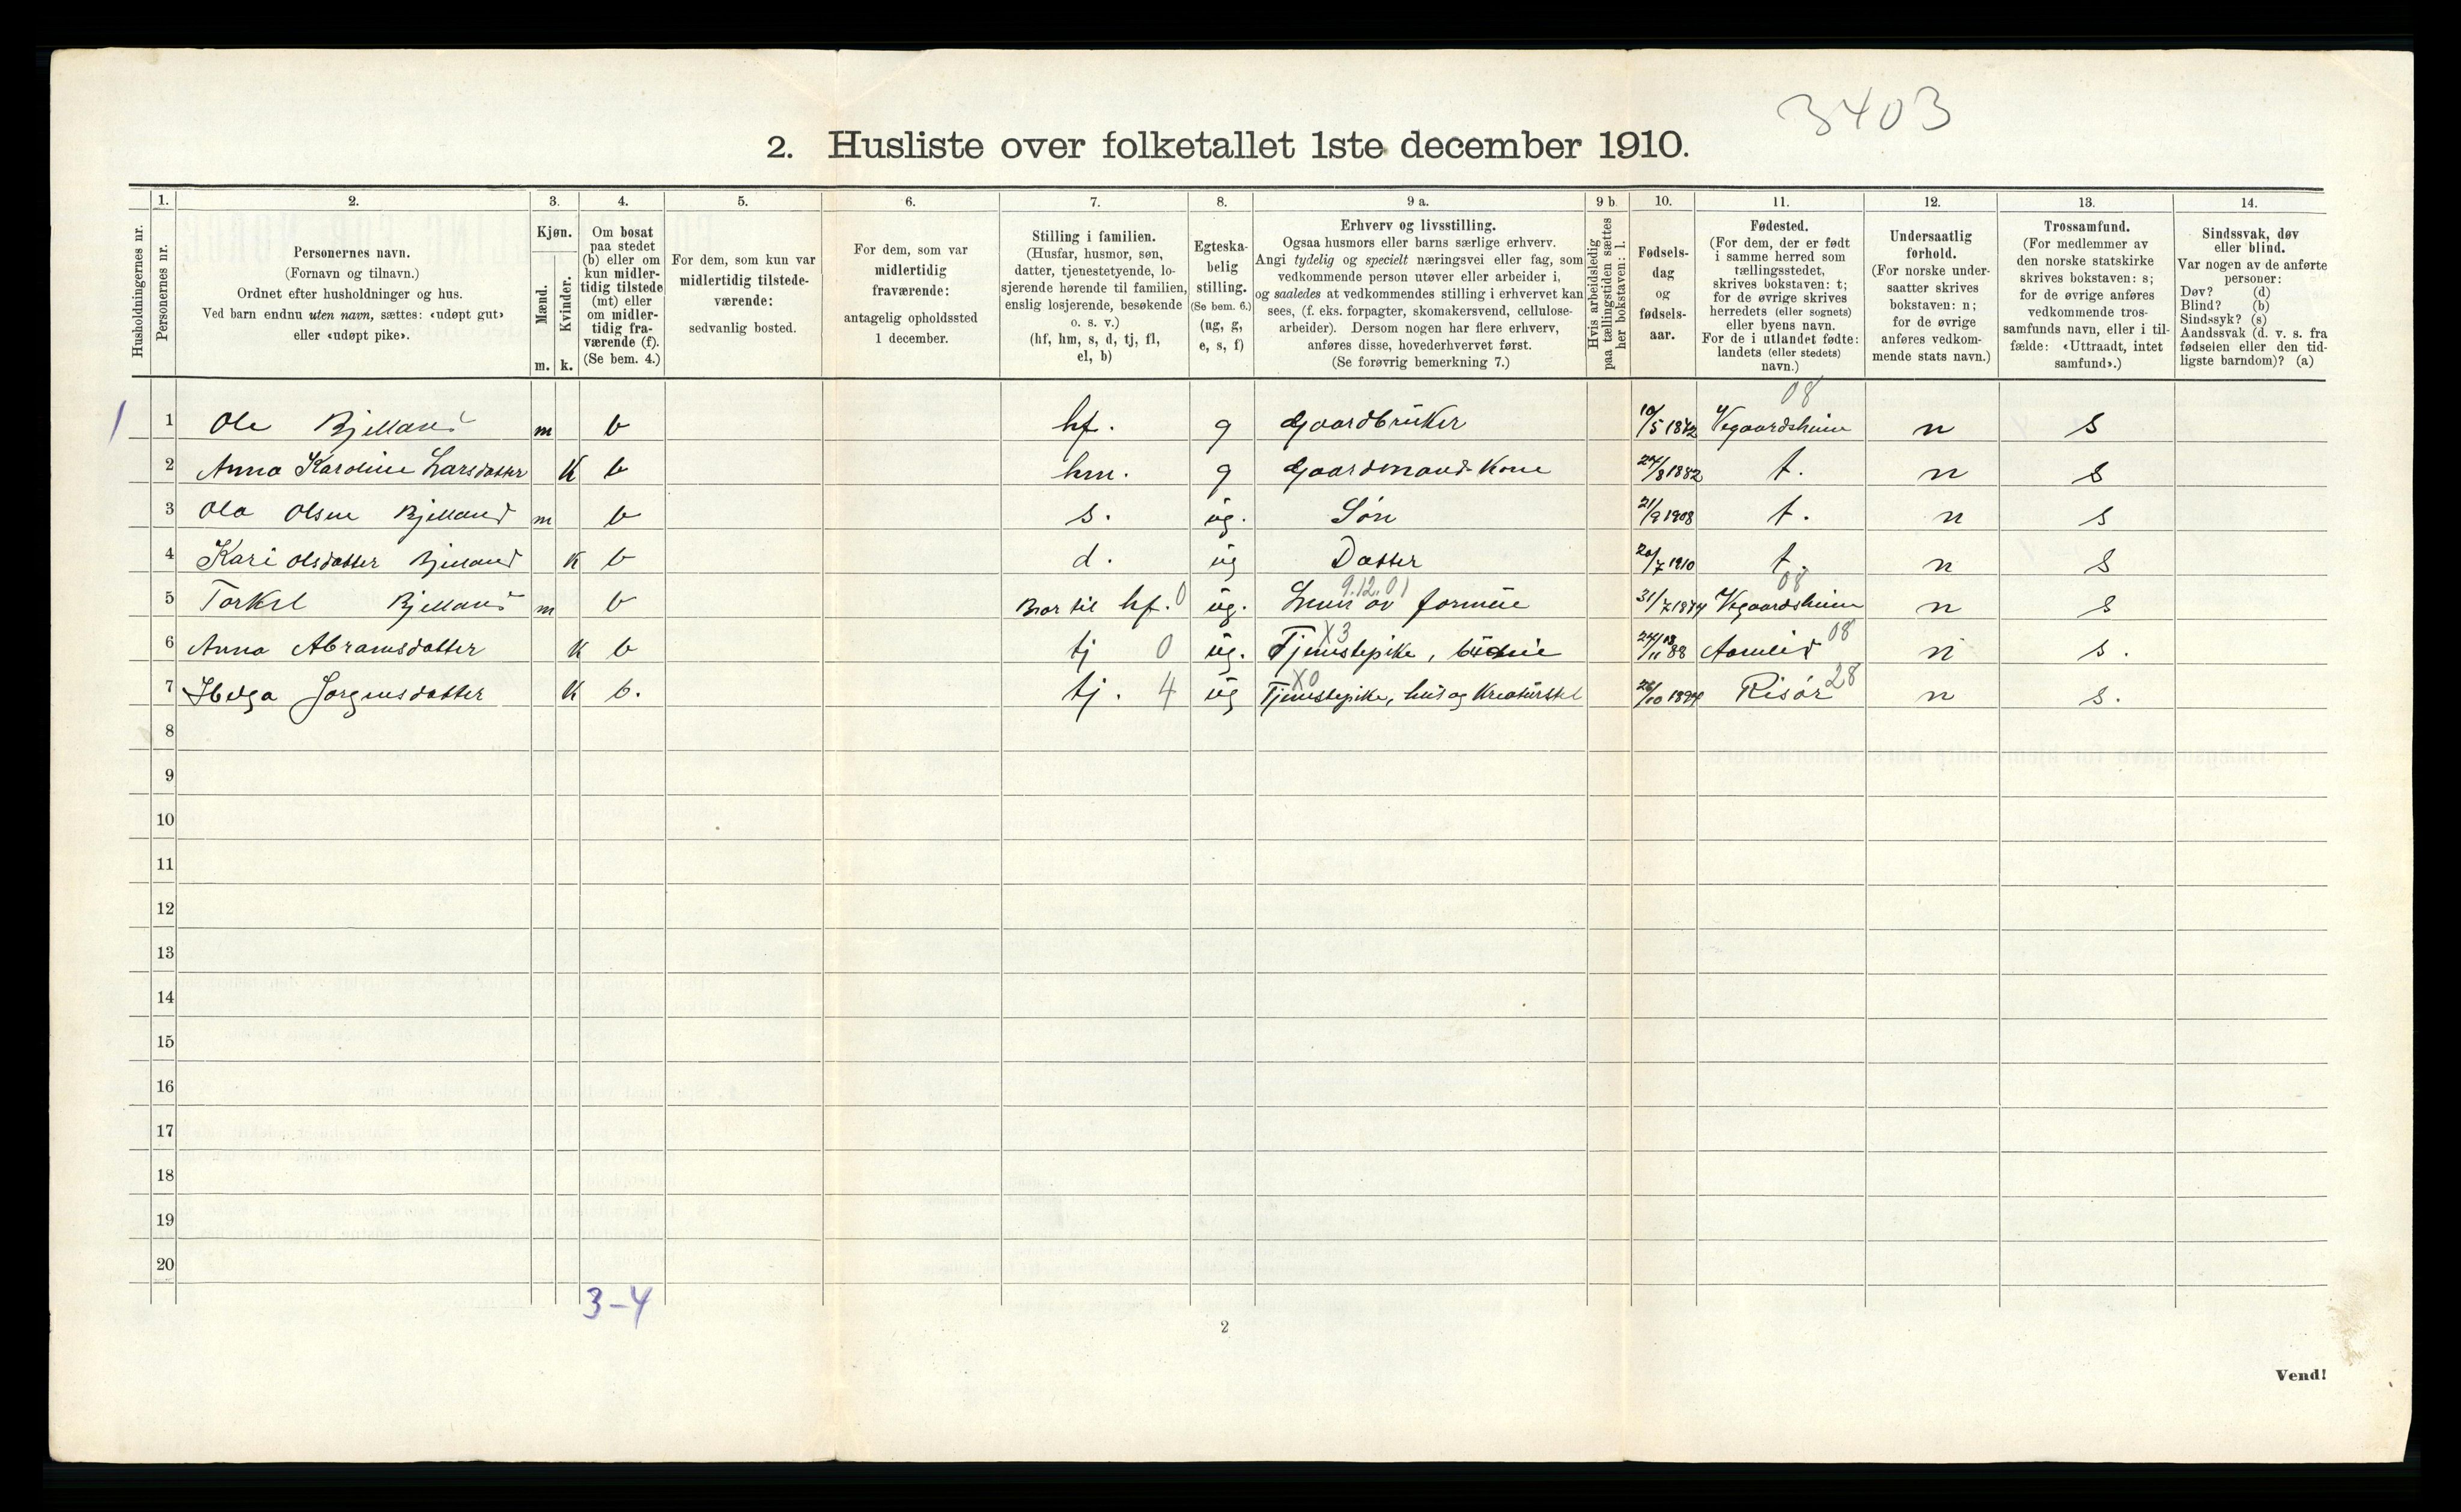 3403
2. Husliste over folketallet 1ste december 1910.
Husholdningernes nr.
1.
Personernes nr.
2.
Personernes navn.
(Fornavn og tilnavn.)
Ordnet efter husholdninger og hus.
Ved barn endnu uten navn, sættes: «udøpt gut»
eller «udøpt pike».
3.
Kjøn.
Mænd.
Kvinder.
m. k.
4.
Om bosat
paa stedet
(b) eller om
kun midler-
tidig tilstede
(mt) eller
om midler-
tidig fra-
værende (f).
(Se bem. 4.)
5.
For dem, som kun var
midlertidig tilstede-
værende:
sedvanlig bosted.
6.
For dem, som var
midlertidig
fraværende:
antagelig opholdssted
1 december.
7.
Stilling i familien.
(Husfar, husmor, søn,
datter, tjenestetyende, lo-
sjerende hørende til familien,
enslig losjerende, besøkende
o. s. v.)
(hf, hm, s, d, tj, fl,
el, b)
8.
Egteska-
belig
stilling.
(Se bem. 6.)
(ug, g,
e, s, f)
9 a.
Erhverv og livsstilling.
Ogsaa husmors eller barns særlige erhverv.
Angi tydelig og specielt næringsvei eller fag, som
vedkommende person utøver eller arbeider i,
og saaledes at vedkommendes stilling i erhvervet kan
sees, (f. eks. forpagter, skomakersvend, cellulose-
arbeider). Dersom nogen har flere erhverv,
anføres disse, hovederhvervet først.
(Se forøvrig bemerkning 7.)
9 b.
Hvis arbeidsledig
paa tællingstiden sættes
her bokstaven: l.
10.
Fødsels-
dag
og
fødsels-
aar.
11.
Fødested.
(For dem, der er født
i samme herred som
tællingsstedet,
skrives bokstaven: t;
for de øvrige skrives
herredets (eller sognets)
eller byens navn.
For de i utlandet fødte:
landets (eller stedets)
navn.)
12.
Undersaatlig
forhold.
(For norske under-
saatter skrives
bokstaven: n;
for de øvrige
anføres vedkom-
mende stats navn.)
13.
Trossamfund.
(For medlemmer av
den norske statskirke
skrives bokstaven: s;
for de øvrige anføres
vedkommende tros-
samfunds navn, eller i til-
fælde: «Uttraadt, intet
samfund».)
14.
Sindssvak, døv
eller blind.
Var nogen av de anførte
personer:
Døv? (d)
Blind? (b)
Sindssyk? (s)
Aandssvak (d. v. s. fra
fødselen eller den tid-
ligste barndom)? (a)
08
1 1 Ole Bjelland m b hf. g Gaardbruker 10/5 1872 Vegaardsheim n s
2 Anna Karoline Larsdatter K b hm. g Gaardmand Kone 24/8 1882 t. n s
3 Ola Olsen Bjelland m b s. ug. Søn 21/9 1908 t. n s
4 Kari Olsdatter Bjelland K b d. ug Datter 20/7 1910 t. n s
9.12.01 08
5 Torkel Bjelland m b Bror til hf. 0 ug. av formue 31/7 1874 Vegaardsheim n s
X3 08
6 Anna Abramsdatter K b tj 0 ug. Tjenstepike, 24/11 88 Aamlid n s.
X0 28
7 Helga Jorgensdatter K b. tj. 4 ug Tjenstepike, hus og Kreaturstel 26/10 1894 Risør n s.
8
9
10
11
12
13
14
15
16
17
18
19
20
3-4
2
Vend!